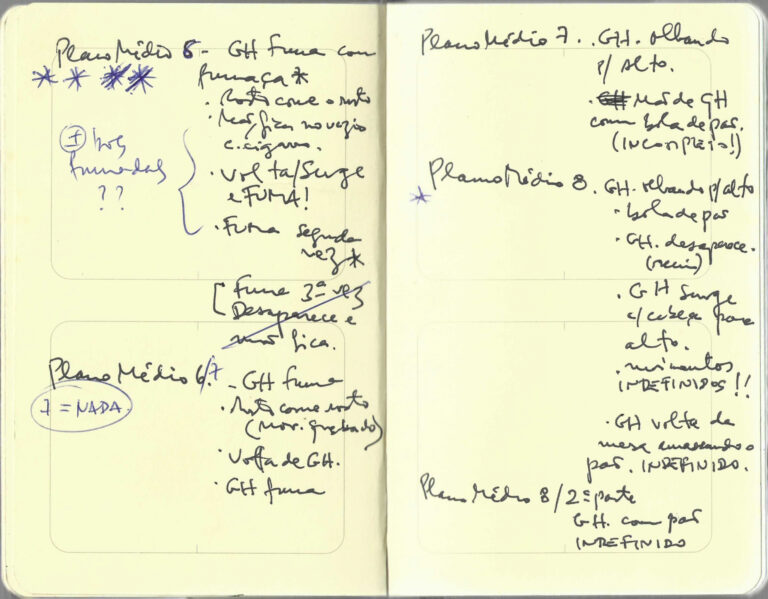 Plano Médio 5 - GH fuma com
fumaça *
* * * *
· Rosto come o rosto
· Mão fica no vazio
c. cigarro.
· Volta/Surge
e FUMA!
· FUMA segunda
vez *
fumadas
??
[ Fuma 3ª vez
Desaparece e
mão fica.
Plano Médio 6/7. - GH fuma
7 = NADA.
· Rosto come rosto
(Mov. quebrado)
· Volta de GH.
· GH fuma
Plano Médio 7. . GH. olhando
p/ alto.
· GH Mão de GH
com bola de pão.
(INCOMPLETO!)
Plano Médio 8. . GH. olhando p/ alto
*
· bola de pão
· GH. desaparece.
· GH Surge
c/ cabeça para
alto.
· movimentos
INDEFINIDOS!!
· GH volta da
mesa amassando o
pão. INDEFINIDO.
Plano Médio 8/2ª parte
GH. com pão
INDEFINIDO